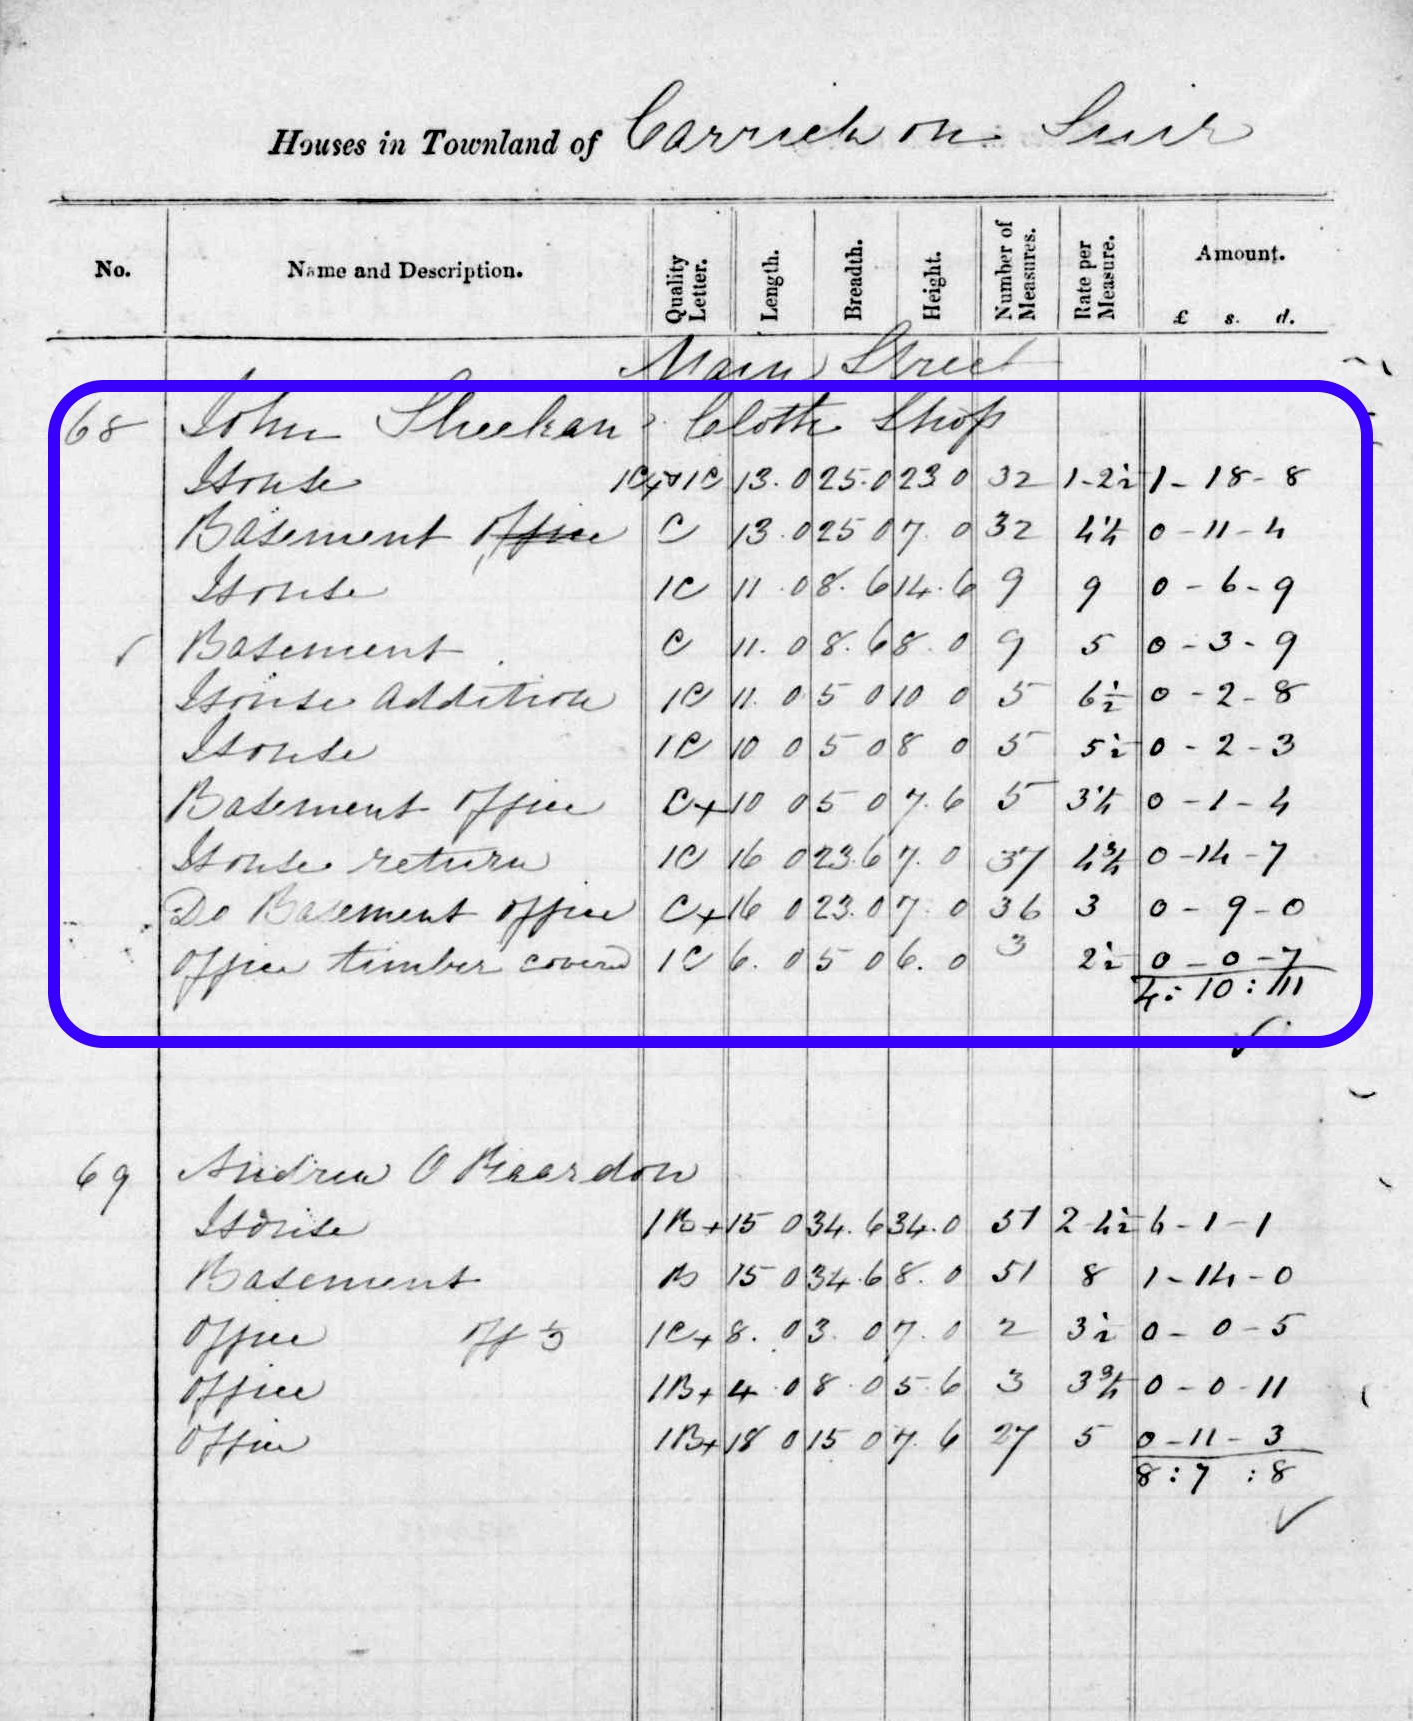 Houses in Townland of Carrick on Suir
No. Name and Description. Quality Letter. Length. Breadth. Height. Number of Measures. Rate per Measure. Amount. £ s. d.
Main Street
68 John Sheehan Cloth Shop
House 1C+&1C 13.0 25.0 23 0 32 1-2½ 1-18-8
Basement office C 13.0 25 0 7.0 32 4¼ 0-11-4
House 1C 11.0 8.6 14.6 9 9 0-6-9
Basement C 11.0 8.6 8.0 9 5 0-3-9
House Addition 1C 11.0 5 0 10 0 5 6½ 0-2-8
House 1C 10 0 5 0 8 0 5 5½ 0-2-3
Basement office C+ 10 0 5 0 7.6 5 3¼ 0-1-4
House return 1C 16 0 23.6 7.0 37 4¾ 0-14-7
Do Basement office C+ 16 0 23.0 7.0 36 3 0-9-0
Office timber covered 1C 6.0 5 0 6.0 3 2½ 0-0-7
4:10:11
69 Andrew O Reardon
House 1B+ 15 0 34.6 34.0 51 2-4½ 6-1-1
Basement B 15 0 34.6 8.0 51 8 1-14-0
Office off ⅓ 1C+ 8.0 3.0 7.0 2 3½ 0-0-5
Office 1B+ 4.0 8.0 5.6 3 3¾ 0-0-11
Office 1B+ 18 0 15 0 7.6 27 5 0-11-3
8:7:8